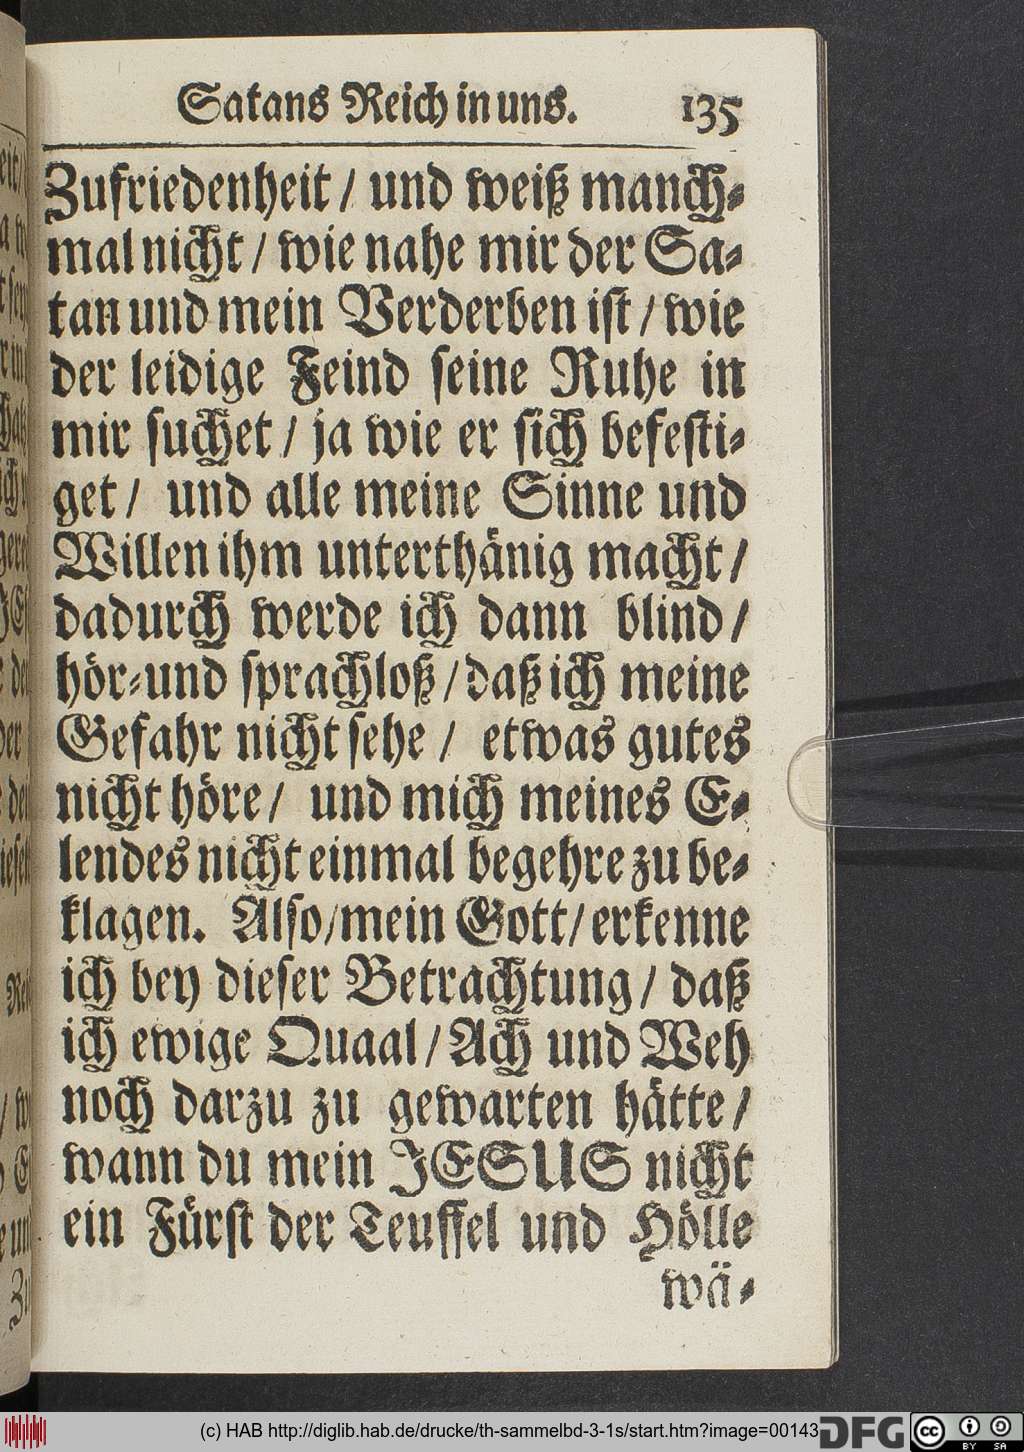 Satans Reich in uns. 135
Zufriedenheit / und weiß manch-
mal nicht / wie nahe mir der Sa-
tan und mein Verderben ist / wie
der leidige Feind seine Ruhe in
mir suchet / ja wie er sich befesti-
get / und alle meine Sinne und
Willen ihm unterthänig macht /
dadurch werde ich dann blind /
hör-und sprachloß / daß ich meine
Gefahr nicht sehe / etwas gutes
nicht höre / und mich meines E-
lendes nicht einmal begehre zu be-
klagen. Also / mein Gott / erkenne
ich bey dieser Betrachtung / daß
ich ewige Quaal / Ach und Weh
noch darzu zu gewarten hätte /
wann du mein JESUS nicht
ein Fürst der Teuffel und Hölle
wä-
(c) HAB http://diglib.hab.de/drucke/th-sammelbd-3-1s/start.htm?image=00143
DFG
cc BY SA